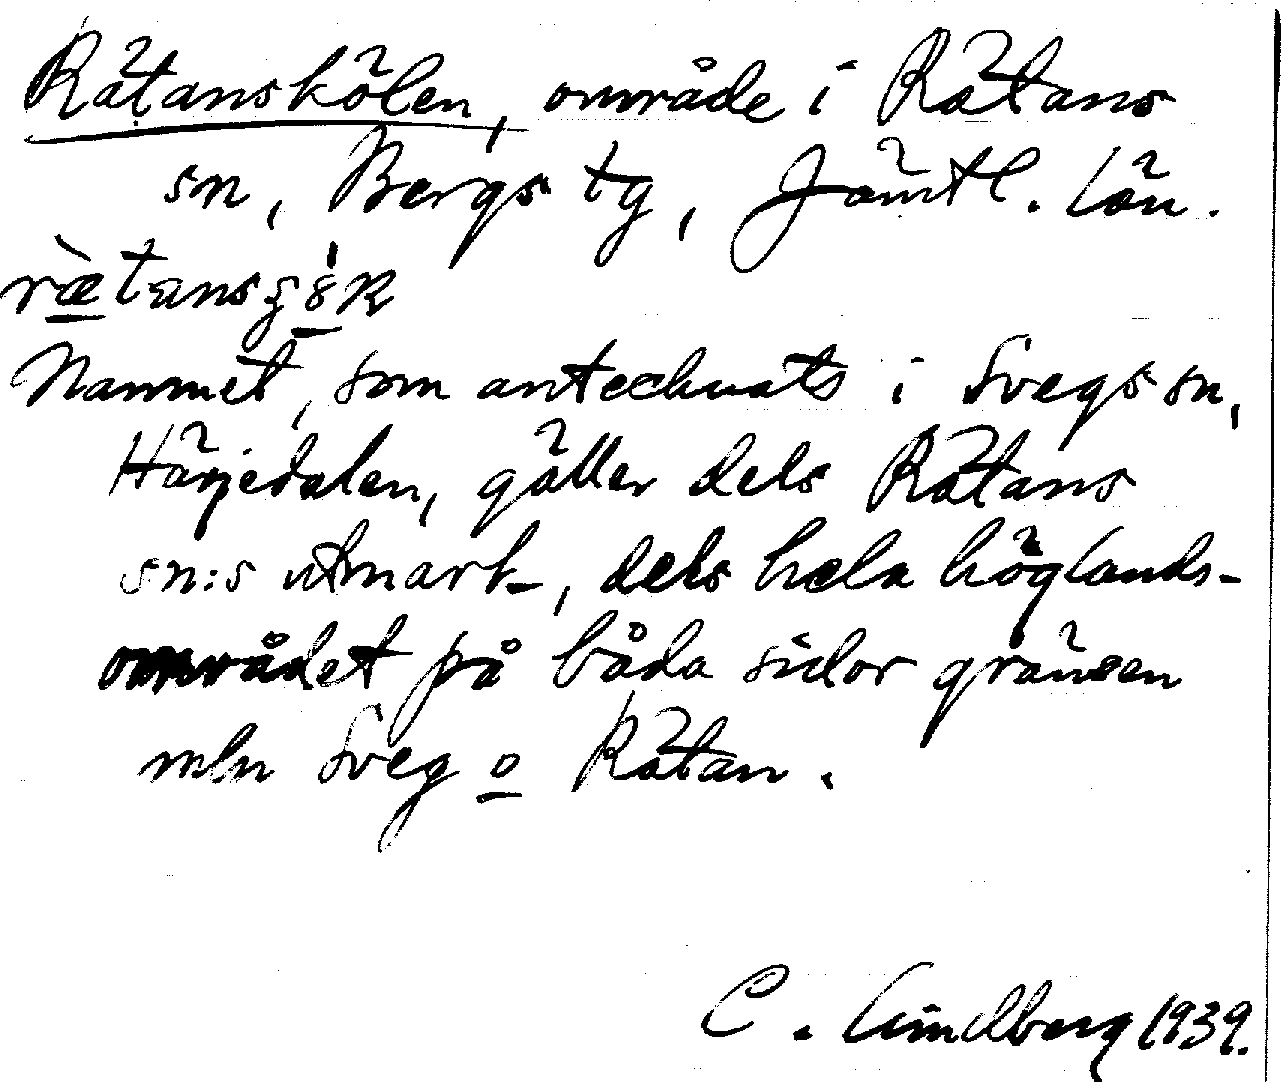 Rätanskölen, område i Rätans
sn, Bergs tg, Jämtl. län.
Namnet, som antecknats i Svegs sn,
Härjedalen, gäller dels Rätans
sn:s utmark, dels hela höglands-
området på båda sidor gränsen
mln Sveg o Rätan.
C. Lindberg 1939.